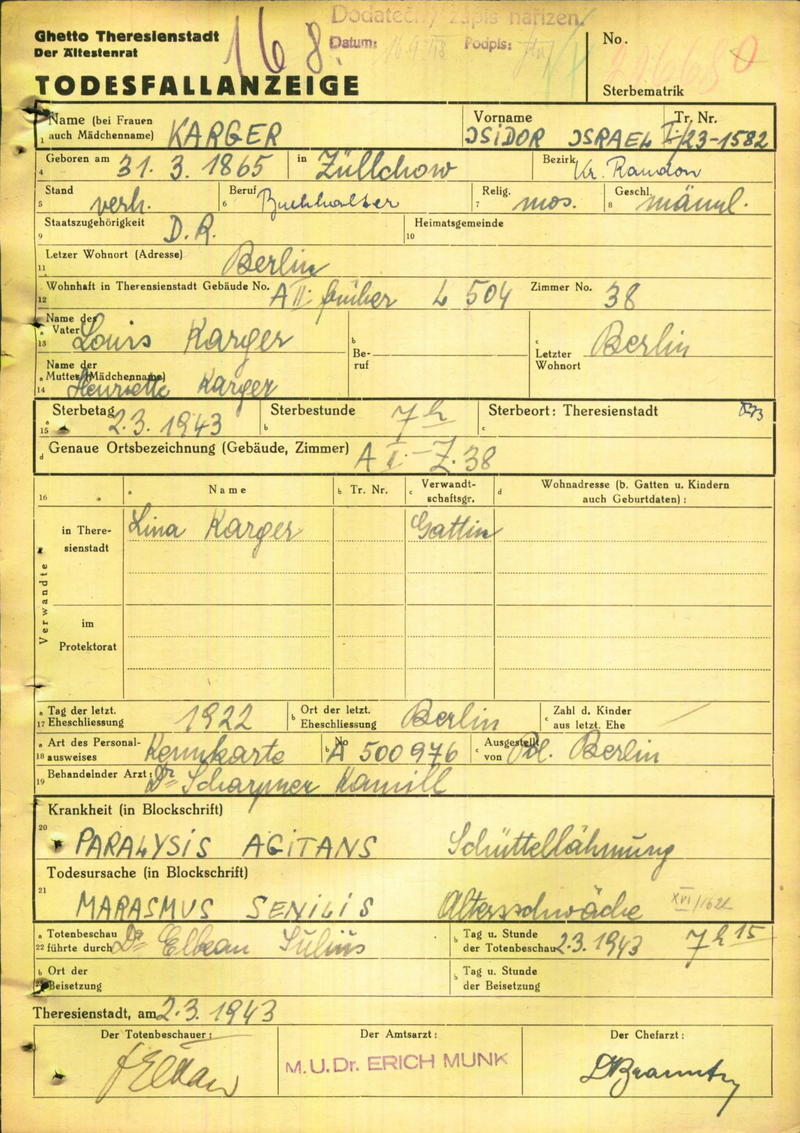 Dodatečný zápis nařízen.
Ghetto Theresienstadt
Der Ältestenrat
168.
Datum: Podpis:
No.
TODESFALLANZEIGE
Sterbematrik
Name (bei Frauen auch Mädchenname) KARGER Vorname ISIDOR ISRAEL Tr. Nr. I/23-1582
1
4 Geboren am 31. 3. 1865 in Züllchow Bezirk Kr. Randon
5 Stand verh. 6 Beruf Buchhalter 7 Relig. mos. 8 Geschl. männl.
9 Staatszugehörigkeit D.R. 10 Heimatsgemeinde
11 Letzer Wohnort (Adresse) Berlin
12 Wohnhaft in Theresienstadt Gebäude No. A II früher L 504 Zimmer No. 38
13 a Name des Vater Louis Karger b Beruf c Letzter Wohnort Berlin
14 a Name der Mutter (Mädchenname) Henriette Karger
15 a Sterbetag 2.3. 1943 b Sterbestunde 7 h c Sterbeort: Theresienstadt
d Genaue Ortsbezeichnung (Gebäude, Zimmer) A II Z. 38
16 a Name b Tr. Nr. c Verwandtschaftsgr. d Wohnadresse (b. Gatten u. Kindern auch Geburtdaten):
Verwandte
in Theresienstadt Lina Karger Gattin
im Protektorat
17 a Tag der letzt. Eheschliessung 1922 b Ort der letzt. Eheschliessung Berlin c Zahl d. Kinder aus letzt. Ehe —
18 a Art des Personalausweises Kennkarte b No A 500976 c Ausgestellt von Pol. Berlin
19 Behandelnder Arzt: Dr Kamill
Krankheit (in Blockschrift)
20 PARALYSIS AGITANS Schüttellähmung
Todesursache (in Blockschrift)
21 MARASMUS SENILIS Altersschwäche
22 a Totenbeschau führte durch Dr Julius b Tag u. Stunde der Totenbeschau 2.3. 1943 7 h 15
b Ort der Beisetzung b Tag u. Stunde der Beisetzung
Theresienstadt, am 2.3. 1943
Der Totenbeschauer: Der Amtsarzt: Der Chefarzt:
M.U.Dr. ERICH MUNK